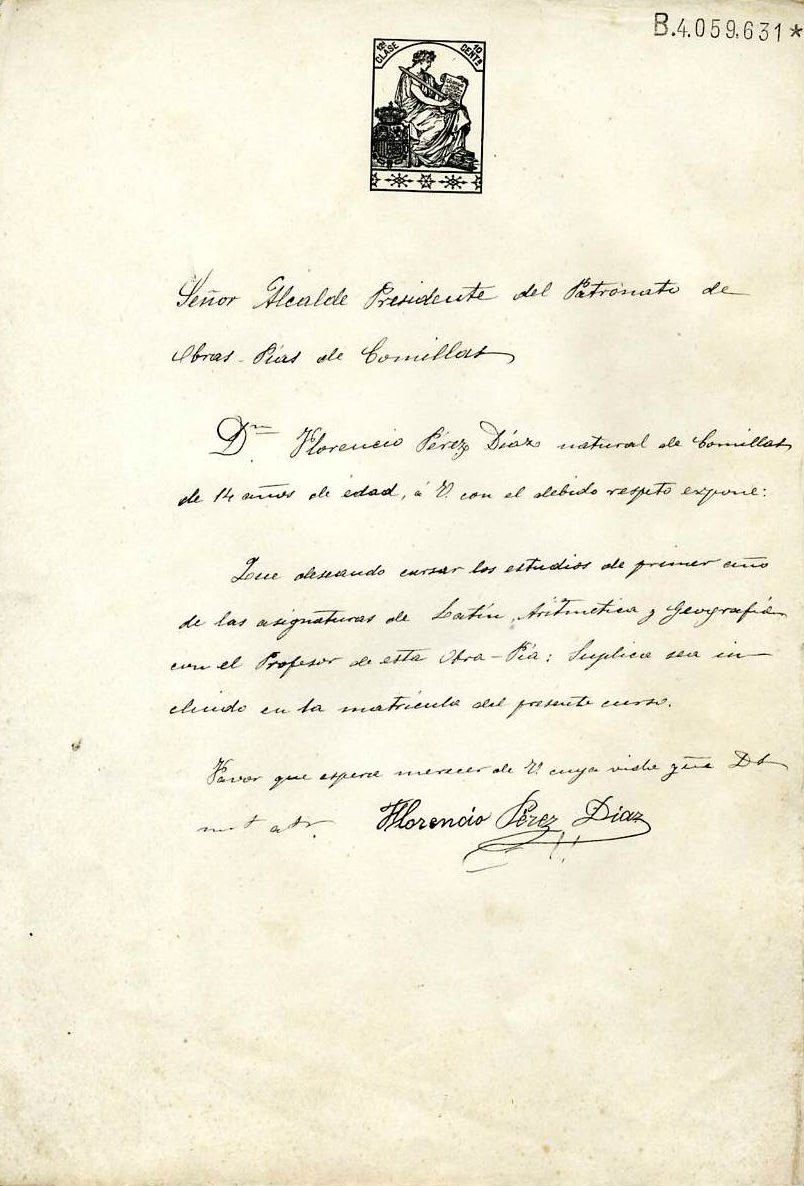 B.4.059.631*
12ª CLASE
10 CENTS
Señor Alcalde Presidente del Patronato de
Obras-Pías de Comillas
Dn Florencio Pérez Díaz natural de Comillas
de 14 años de edad, á V. con el debido respeto expone:
Que deseando cursar los estudios de primer año
de las asignaturas de Latín, Aritmética y Geografía
con el Profesor de esta Obra-Pía: Suplica sea in-
cluido en la matrícula del presente curso.
Favor que espera merecer de V. cuya vida gue Ds
Florencio Pérez Díaz